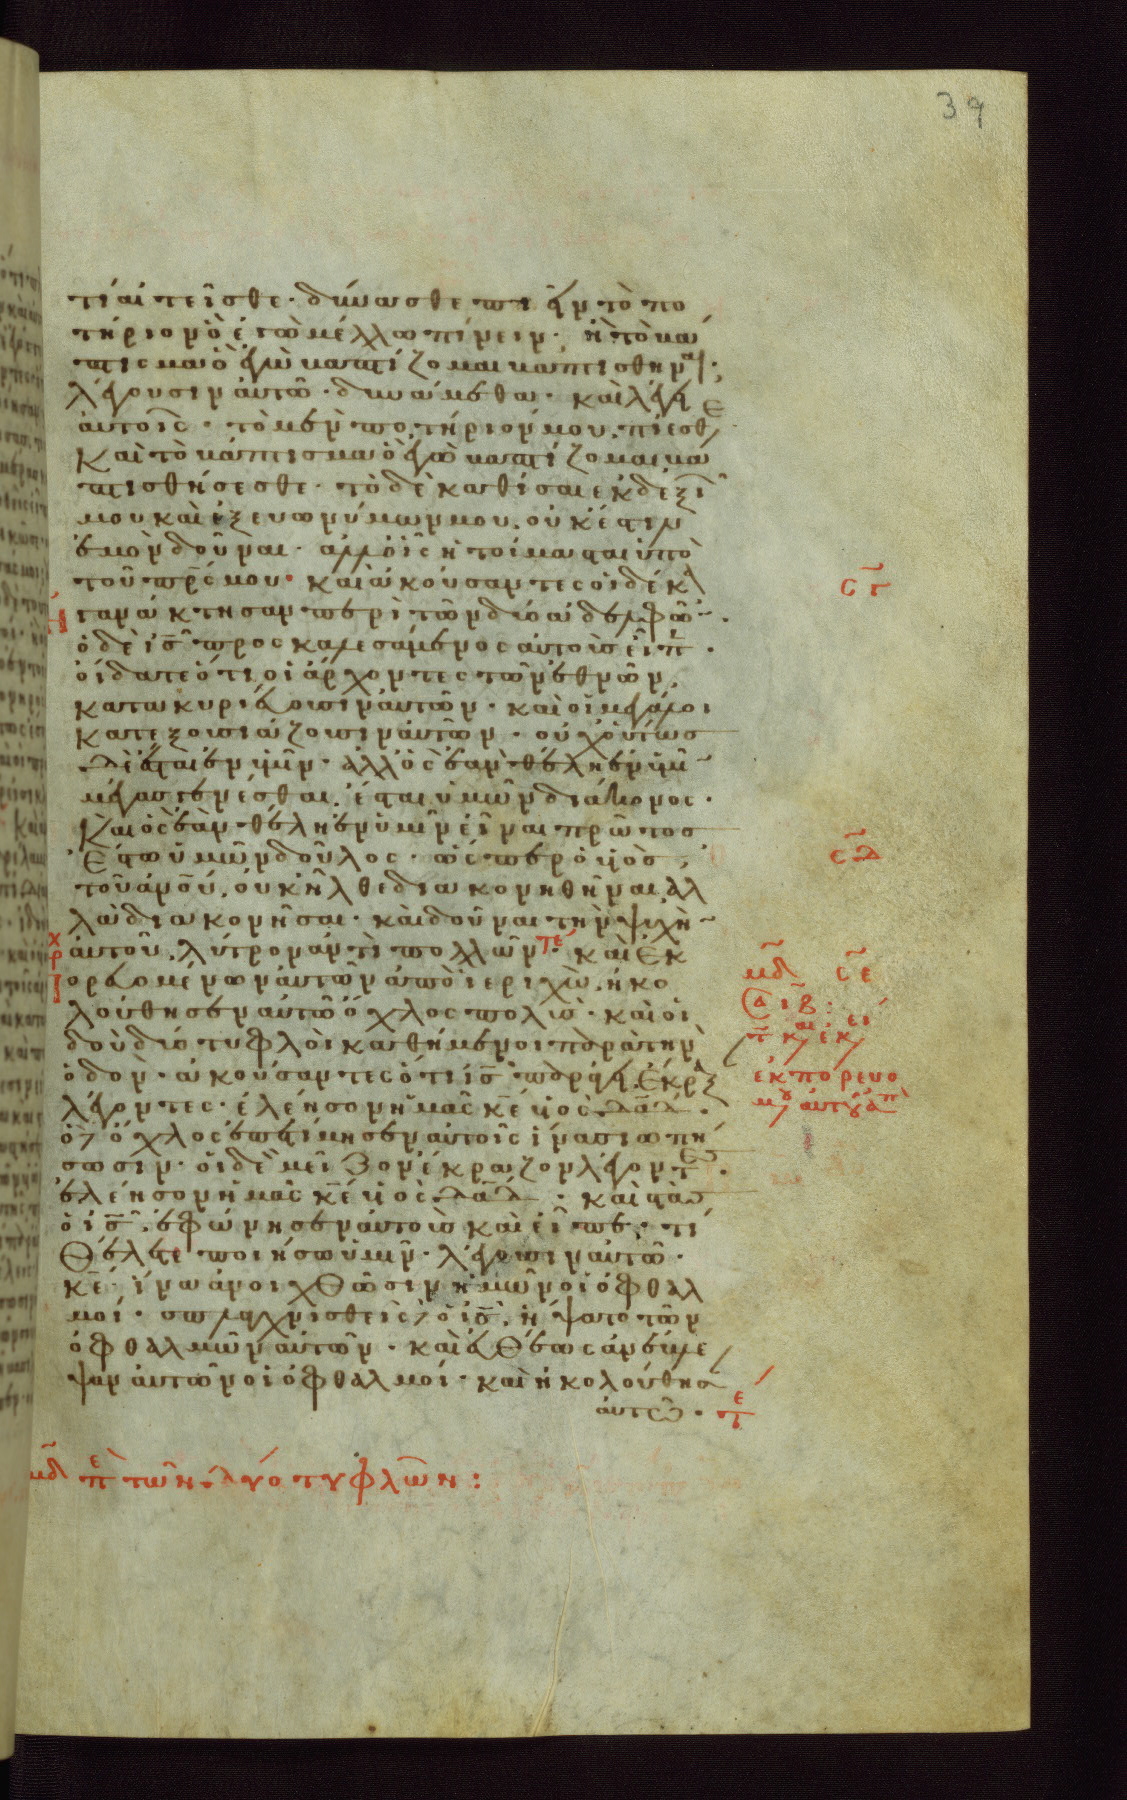 39
τί αἰτεῖσθε· δύνασθε πιεῖν τὸ πο
τήριον ὃ ἐγὼ μέλλω πίνειν· ἢ τὸ βά
πτισμα ὃ ἐγὼ βαπτίζομαι βαπτισθῆναι·
λέγουσιν αὐτῶ· δυνάμεθα· καὶ λέγει
αὐτοῖς· τὸ μὲν ποτήριόν μου πίεσθε
καὶ τὸ βάπτισμα ὃ ἐγὼ βαπτίζομαι βα
πτισθήσεσθε· τὸ δὲ καθίσαι ἐκ δεξιῶ
μου καὶ ἐξ εὐωνύμων μου, οὐκ ἔστιν
ἐμὸν δοῦναι· ἀλλ' οἷς ἡτοίμασται ὑπὸ
τοῦ πρς μου· καὶ ἀκούσαντες οἱ δέκα
ἠγανάκτησαν περὶ τῶν δύο ἀδελφῶ·
ὁ δὲ ις προσκαλεσάμενος αὐτοὺς εἶπ·
οἴδατε ὅτι οἱ ἄρχοντες τῶν ἐθνῶν
κατακυριεύουσιν αὐτῶν· καὶ οἱ μεγάλοι
κατεξουσιάζουσιν αὐτῶν· οὐχ οὕτως
δὲ ἔσται ἐν ὑμῖν· ἀλλ' ὃς ἐὰν θέλη ἐν ὑμῖ
μέγας γενέσθαι, ἔσται ὑμῶν διάκονος·
καὶ ὃς ἐὰν θέλη ἐν ὑμῖν εἶναι πρῶτος
ἔστω ὑμῶν δοῦλος· ὥσπερ ὁ υἱὸς
τοῦ ἀνου, οὐκ ἦλθε διακονηθῆναι, ἀλ
λὰ διακονῆσαι· καὶ δοῦναι τὴν ψυχὴ
αὐτοῦ, λύτρον ἀντὶ πολλῶν· τε καὶ ἐκ
πορευομένων αὐτῶν ἀπὸ ἱεριχώ, ἠκο
λούθησεν αὐτῶ ὄχλος πολύς· καὶ ἰ
δοὺ δύο τυφλοὶ καθήμενοι παρὰ τὴν
ὁδόν· ἀκούσαντες ὅτι ις παράγει, ἔκραξ
λέγοντες· ἐλέησον ἡμᾶς κε υἱὸς δαδ·
ὁ δὲ ὄχλος ἐπετίμησεν αὐτοῖς ἵνα σιωπή
σωσιν· οἱ δὲ μεῖζον ἔκραζον λέγοντες·
ἐλέησον ἡμᾶς κε υἱὸς δαδ· καὶ στὰς
ὁ ις, ἐφώνησεν αὐτοὺς καὶ εἶπε· τί
θέλετε ποιήσω ὑμῖν· λέγουσιν αὐτῶ·
κε ἵνα ἀνοιχθῶσιν ἡμῶν οἱ ὀφθαλ
μοί· σπλαγχνισθεὶς δὲ ὁ ις, ἥψατο τῶν
ὀφθαλμῶν αὐτῶν· καὶ εὐθέως ἀνέβλε
ψαν αὐτῶν οἱ ὀφθαλμοί· καὶ ἠκολούθησα
αὐτῶ·
μδ πε τῶν δύο τυφλῶν:
σγ
σδ
μδ σε
ἐκπορευο